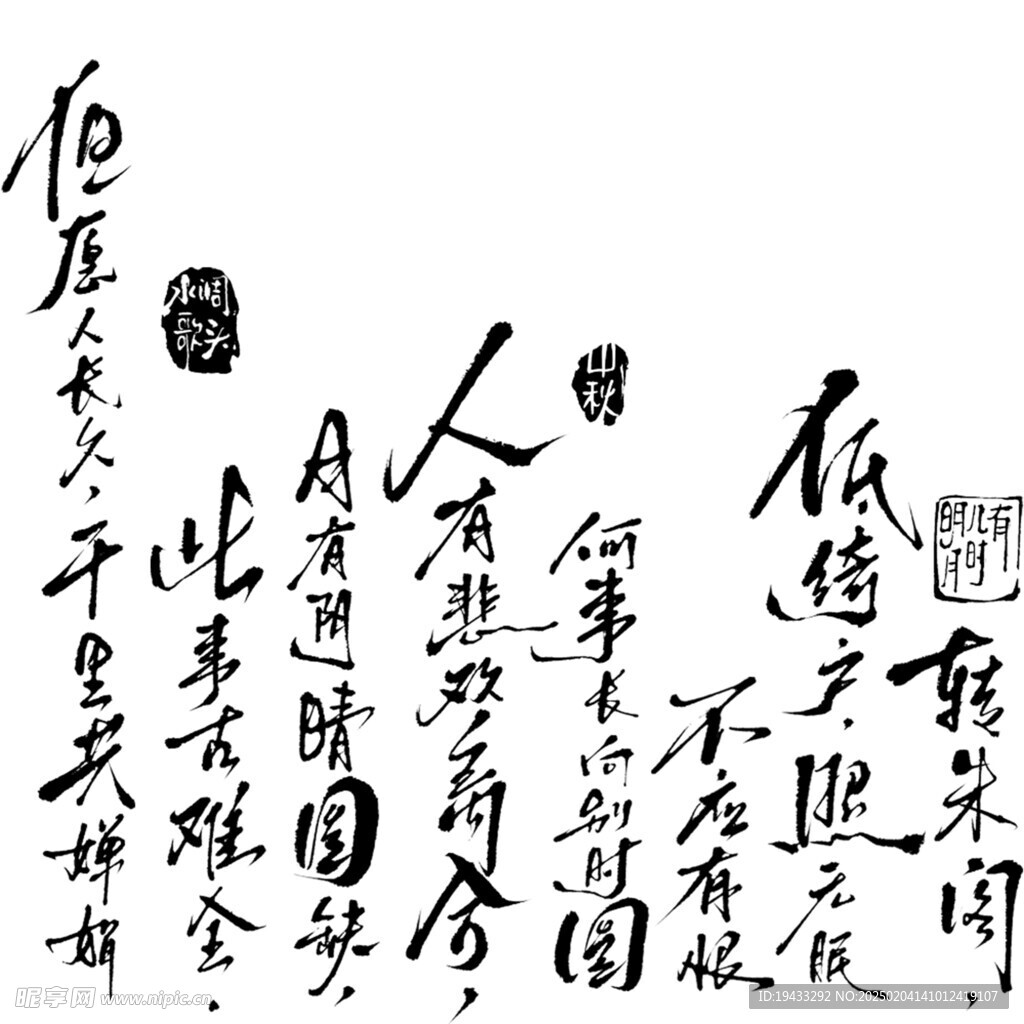 有几时明月
转朱阁，
低绮户，照无眠
不应有恨，
何事长向别时圆
中秋
人有悲欢离合，
月有阴晴圆缺，
此事古难全。
水调歌头
但愿人长久，千里共婵娟
昵享网 www.nipic.cn
ID:19433292 NO:20250204141012419107